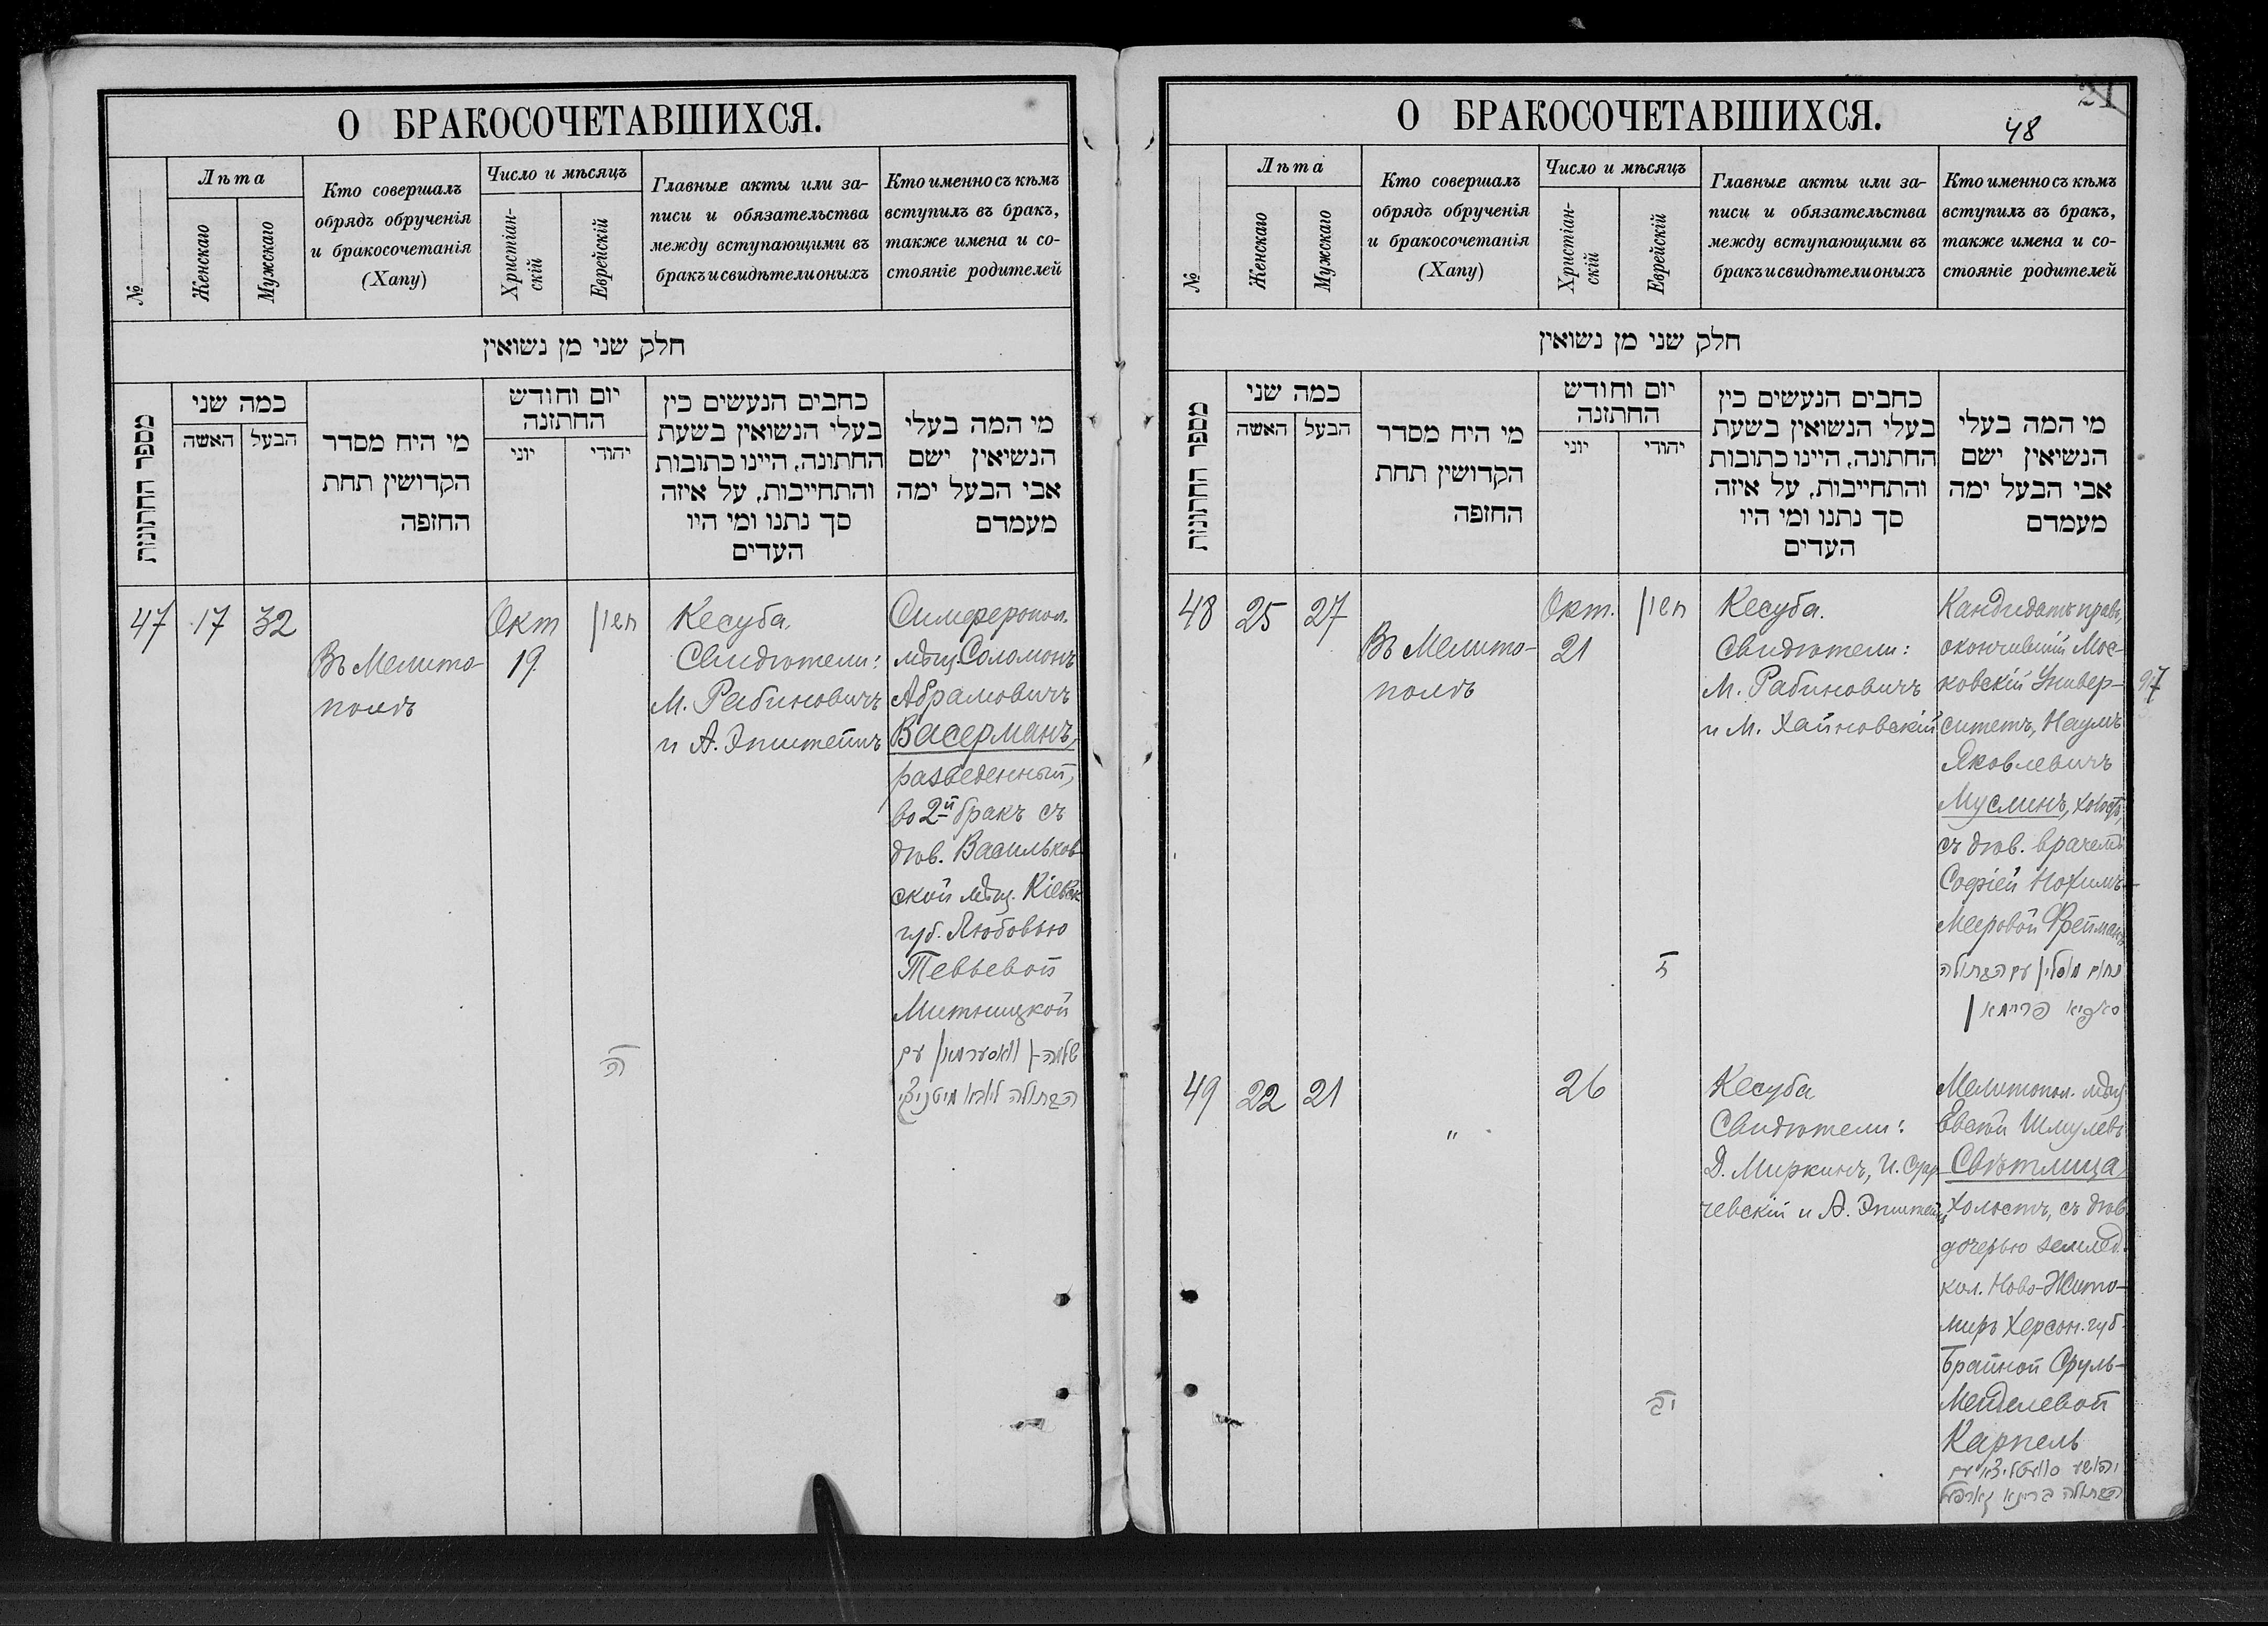 О БРАКОСОЧЕТАВШИХСЯ.
№
Лѣта
Женскаго
Мужскаго
Кто совершалъ
обрядъ обрученія
и бракосочетанія
(Хапу)
Число и мѣсяцъ
Христіан-
скій
Еврейскій
Главные акты или за-
писи и обязательства
между вступающими въ
бракъ и свидѣтели оныхъ
Кто именно съ кѣмъ
вступилъ въ бракъ,
также имена и со-
стояніе родителей
חלק שני מן נשואין
מספר החתונות
כמה שני
האשה
הבעל
מי היח מסדר
הקדושין תחת
החופה
יום וחודש
החתונה
יוני
יהודי
כחבים הנעשים כין
בעלי הנשואין בשעת
החתונה, היינו כתובות
והתחייבות, על איזה
סך נתנו ומי היו
העדים
מי המה בעלי
הנשיאין ישם
אבי הבעל ימה
מעמדם
47
17
32
Въ Мелито-
полѣ
Окт
19
חשן
ה
Кесуба.
Свидѣтели:
М. Рабиновичъ
и А. Эпштейнъ
Симферопол.
мѣщ. Соломонъ
Абрамовичъ
Васерманъ,
разведенный,
во 2й бракъ съ
дѣв. Васильков-
ской мѣщ. Кіевск.
губ. Любовью
Тевьевой
Митницкой
שלמה וואסערמאן עם
הבתולה ליובא מיטניצקי
О БРАКОСОЧЕТАВШИХСЯ.
21
48
№
Лѣта
Женскаго
Мужскаго
Кто совершалъ
обрядъ обрученія
и бракосочетанія
(Хапу)
Число и мѣсяцъ
Христіан-
скій
Еврейскій
Главные акты или за-
писи и обязательства
между вступающими въ
бракъ и свидѣтели оныхъ
Кто именно съ кѣмъ
вступилъ въ бракъ,
также имена и со-
стояніе родителей
חלק שני מן נשואין
מספר החתונות
כמה שני
האשה
הבעל
מי היח מסדר
הקדושין תחת
החופה
יום וחודש
החתונה
יוני
יהודי
כחבים הנעשים כין
בעלי הנשואין בשעת
החתונה, היינו כתובות
והתחייבות, על איזה
סך נתנו ומי היו
העדים
מי המה בעלי
הנשיאין ישם
אבי הבעל ימה
מעמדם
48
25
27
Въ Мелито-
полѣ
Окт.
21
חשן
ז
Кесуба.
Свидѣтели:
М. Рабиновичъ
и М. Хайновскій
Кандидатъ правъ,
окончившій Мос-
ковскій Универ-
97
ситетъ, Наумъ
Яковлевичъ
Муслинъ, холостъ,
съ дѣв. врачемъ
Софіей Нохимъ-
Мееровой Фрейманъ
נחום מוסלין עם הבתולה
סאפיא פריימאן
49
22
21
"
26
יב
Кесуба
Свидѣтели:
Д. Миркинъ, И.
чевскій и А. Эпштейнъ
Мелитопол. мѣщ.
Евсей Шмулевъ
Свѣтлица,
холостъ, съ дѣв.
дочерью землед.
кол. Ново-Жито-
миръ Херсон. губ.
Брайной Сруль-
Менделевой
Карпель
יהושע סוועטליצא עם
הבתולה בריינא קארפעל